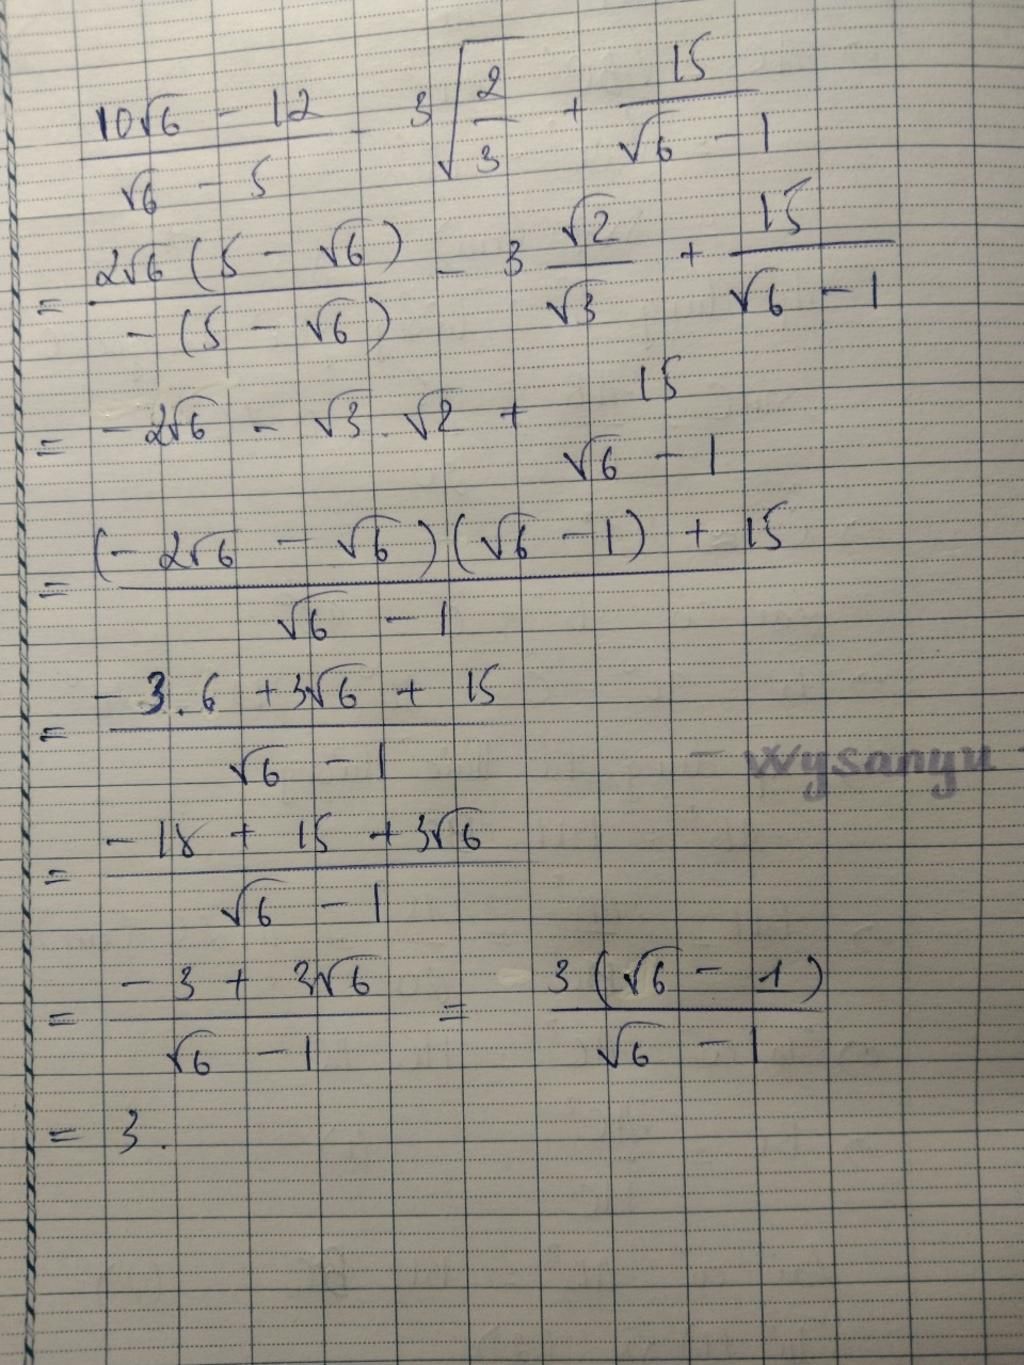 (10√6 - 12)/(√6 - 5) - 3√(2/3) + 15/(√6 - 1)
= 2√6(5 - √6)/-(5 - √6) - 3 √2/√3 + 15/(√6 - 1)
= -2√6 - √3.√2 + 15/(√6 - 1)
= ((-2√6 - √6)(√6 - 1) + 15)/(√6 - 1)
= (-3.6 + 3√6 + 15)/(√6 - 1)
- Wysanyu -
= (-18 + 15 + 3√6)/(√6 - 1)
= (-3 + 3√6)/(√6 - 1) = 3(√6 - 1)/(√6 - 1)
= 3.